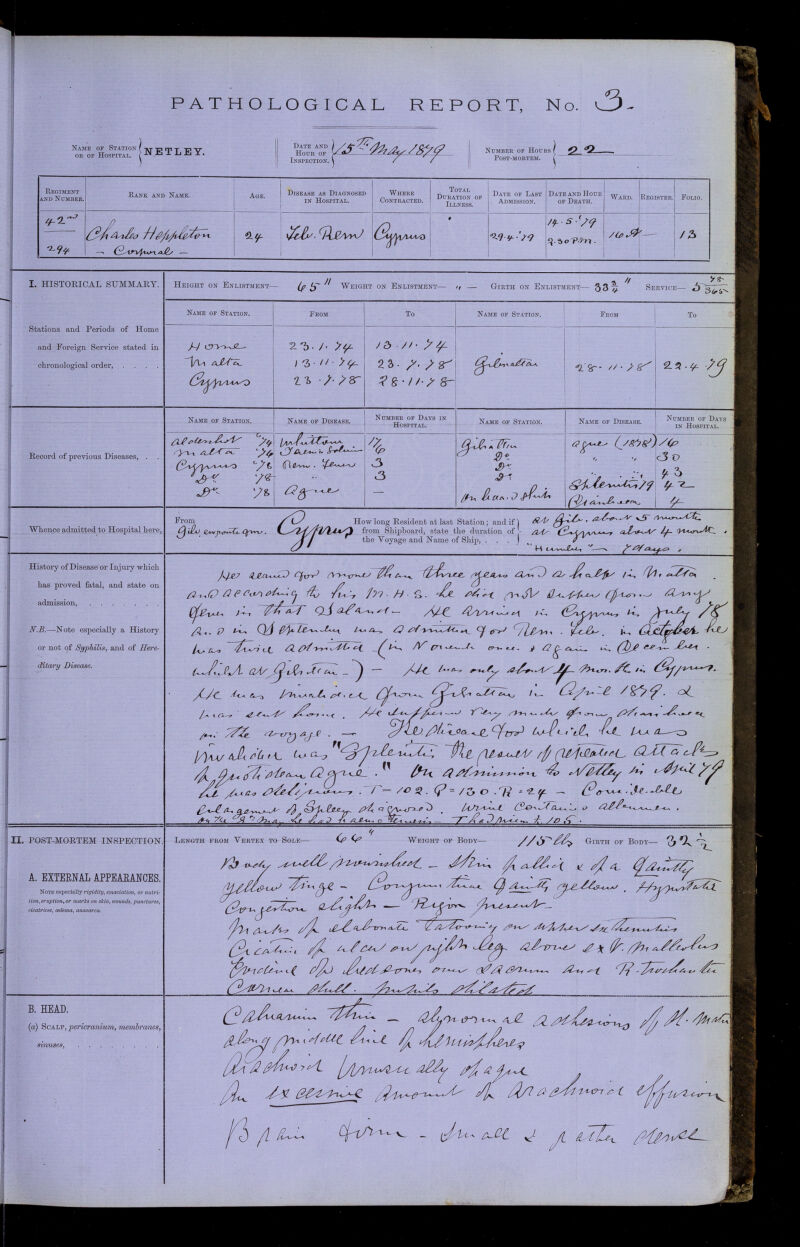 PATHOLOGICAL REPORT, No. 3.
NAME OF STATION OR OF HOSPITAL. NETLEY.
DATE AND HOUR OF INSPECTION. 15TH May 1879
NUMBER OF HOURS POST-MORTEM. 22
REGIMENT AND NUMBER. RANK AND NAME. AGE. DISEASE AS DIAGNOSED IN HOSPITAL. WHERE CONTRACTED. TOTAL DURATION OF ILLNESS. DATE OF LAST ADMISSION. DATE AND HOUR OF DEATH. WARD. REGISTER. FOLIO.
42nd 294 Charles Heppleton - Corporal - 24 Feb. Rem Cyprus 29.4.79 14.5.'79 9.30 P.M. 13
I. HISTORICAL SUMMARY.
HEIGHT ON ENLISTMENT— 65" WEIGHT ON ENLISTMENT— " — GIRTH ON ENLISTMENT— 33 3/4" SERVICE— 5 78/365
Stations and Periods of Home and Foreign Service stated in chronological order, . . . .
NAME OF STATION. FROM TO NAME OF STATION. FROM TO
Home 23.1.74 13.11.74
Malta 13.11.74 23.7.78 Gibraltar 28.11.78 22.4.79
Cyprus 23.7.78 28.11.78
Record of previous Diseases, . .
NAME OF STATION. NAME OF DISEASE. NUMBER OF DAYS IN HOSPITAL. NAME OF STATION. NAME OF DISEASE. NUMBER OF DAYS IN HOSPITAL.
Aldershot '74 17 Gibraltar ague (1878) 16
Malta '76 6 Do " " 30
Cyprus '78 Rem. Fever 3 Do " " 43
Do '78 3 Do Splenitis 79 42
Do '78 Ague — On board ship Diarrhoea 4
Whence admitted to Hospital here,
From Cyprus
How long Resident at last Station; and if from Shipboard, state the duration of the Voyage and Name of Ship, . . .
at Gib. about 5 months
at Cyprus about 4 month.
"Humber" — 7 days.
History of Disease or Injury which has proved fatal, and state on admission, . . . . . . .
N.B.—Note especially a History or not of Syphilis, and of Hereditary Disease.
He served for more than three years and a half in Malta.
and according to his M.H.S. he did not suffer from any
fever in that Island — He arrived in Cyprus in July 78
and in September was admitted for Rem. Feb. in October he
was twice admitted (in November once & again in December.
whilst at Gibraltar —) — He was only about 4 month in Cyprus.
He was invalided from Gibraltar in April 1879. &
was sent home. He suffered very much from diarrhoea
on the voyage. — The disease for which he was
invalided was "Splenitis the result of repeated attacks
of quotidean ague." On admission to Netley in April 79
he was delirious. T = 102. P = 130. R = 24 — Considerable
enlargement of Spleen diagnosed. Urine contains albumen.
II. POST-MORTEM INSPECTION.
LENGTH FROM VERTEX TO SOLE— 66" WEIGHT OF BODY— 115 lbs GIRTH OF BODY— 32 1/2
A. EXTERNAL APPEARANCES.
Note especially rigidity, emaciation, or nutrition, eruption, or marks on skin, wounds, punctures, cicatrices, œdema, anasarca.
Body well nourished — Skin pallid & of a faintly
yellow tinge — Conjunctivae faintly yellow. Hypostatic
Congestion slight — Rigor present —
Marks of elaborate tatooing on upper extremities
Cicatrix of ulcer on right leg above ext. malleolus
Evidence of bedsores over sacrum and R. trochanter
Corneae dull. pupils dilated
B. HEAD.
(a) SCALP, pericranium, membranes, sinuses, . . . . . . .
Calvarium thin — abnormal adhesions of D. Mater
along middle line of hemispheres
Arachnoid unusually opaque
An excessive amount of arachnoid effusion
Brain firm — small & rather dense